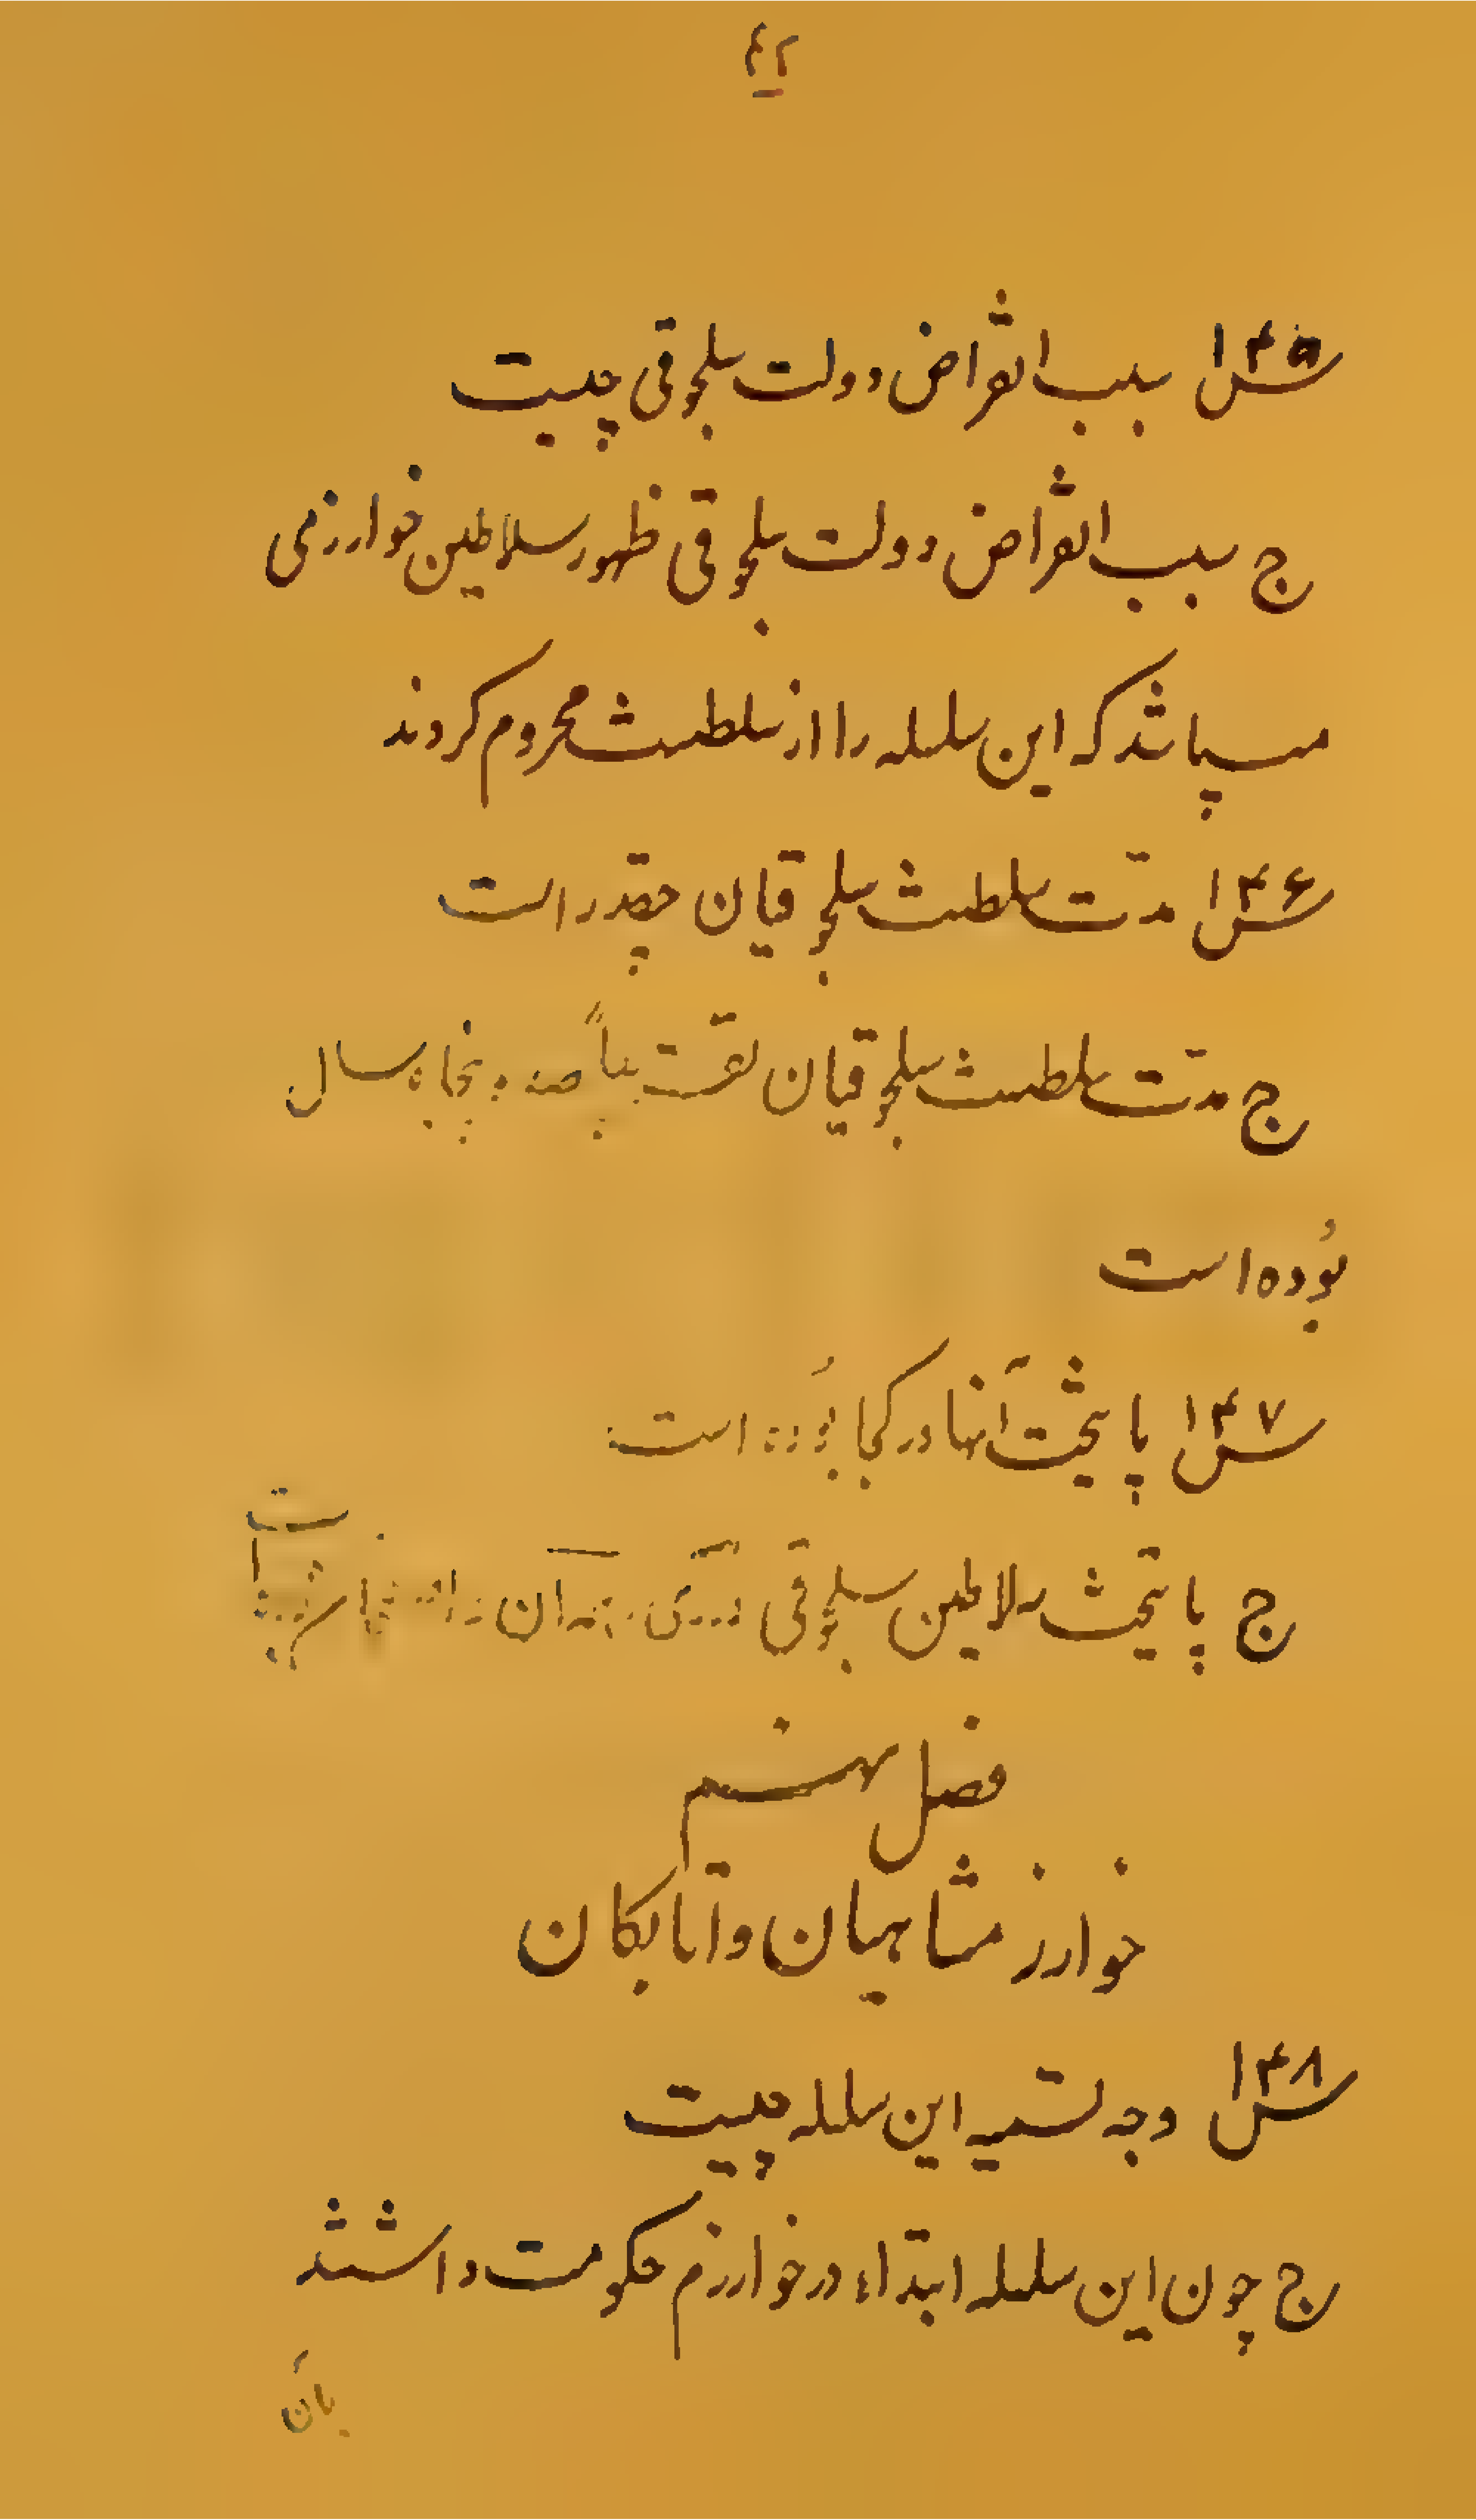 ۴۲
س۱۴۵ سبب انقراض دولت سلجوقی چیست
ج سبب انقراض دولت سلجوقی ظهور سلاطین خوارزمی
میباشد که این سلسله را از سلطنت محروم کردند
س۱۴۶ مدّت سلطنت سلجوقیان چقدر است
ج مدّت سلطنت سلجوقیان تقریباً صد و پنجاه سال
بُوده است
س۱۴۷ پایتخت آنها در کجا بُوده است
ج پایتخت سلاطین سلجوقی در ری همدان
فصل نهم
خوارزمشاهیان و اتابکان
س۱۴۸ وجه تسمیه این سلسله چیست
ج چون این سلسله ابتداء در خوارزم حکومت داشتند